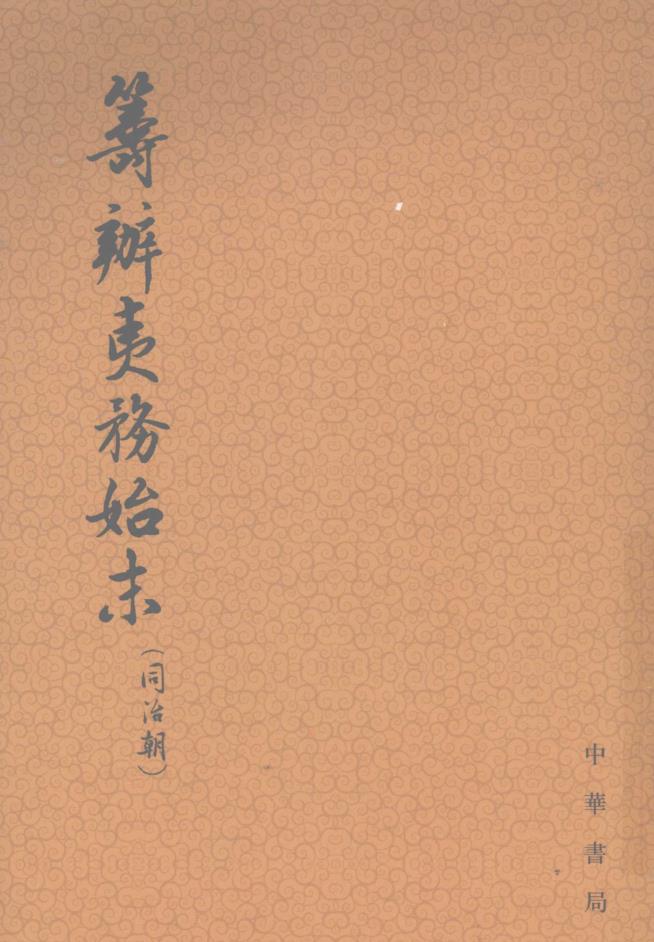 籌辦夷務始末
(同治朝)
中華書局